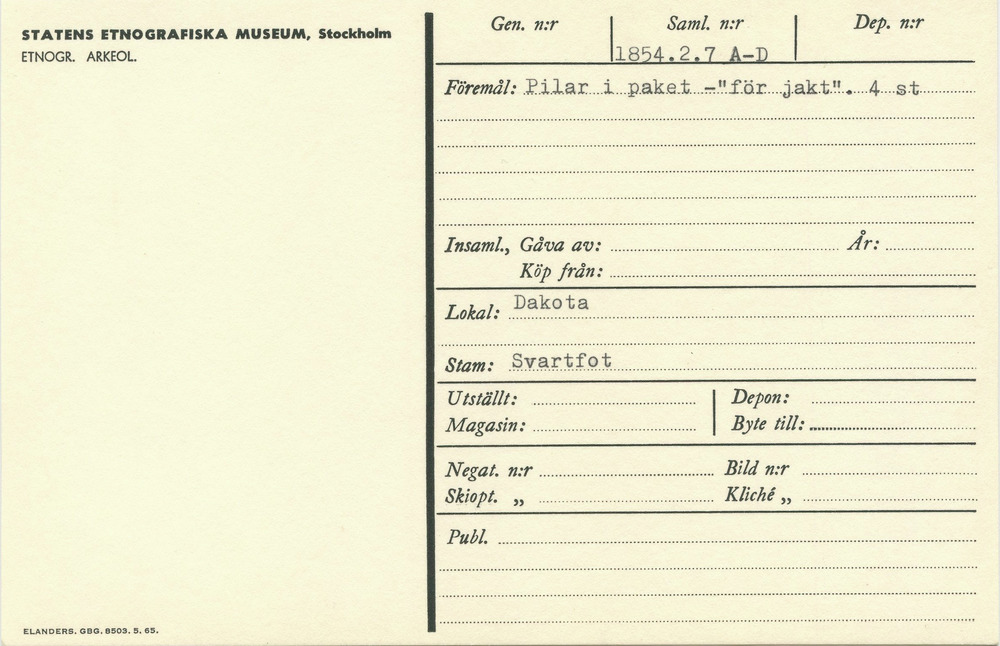 STATENS ETNOGRAFISKA MUSEUM, Stockholm
ETNOGR. ARKEOL.
Gen. n:r
Saml. n:r
Dep. n:r
1854.2.7 A-D
Föremål: Pilar i paket -"för jakt". 4 st
Insaml., Gåva av:
År:
Köp från:
Lokal: Dakota
Stam: Svartfot
Utställt:
Depon:
Magasin:
Byte till:
Negat. n:r
Bild n:r
Skiopt. „
Kliché „
Publ.
ELANDERS. GBG. 8503. 5. 65.